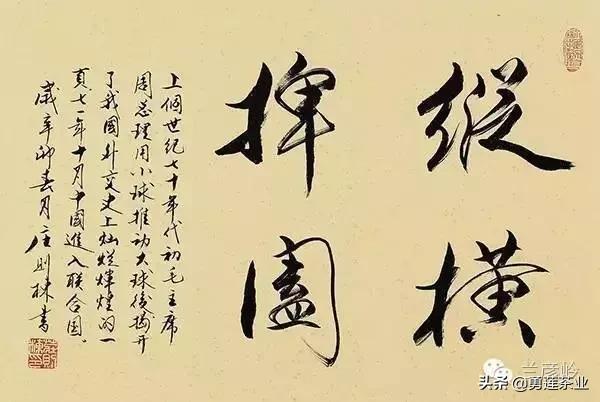 縱橫
捭闔
上個世紀七十年代初毛主席
周总理用小球推动大球後揭开
了我國外交史上灿爛煇煌的一
頁七一年十月中國進入联合国。
歲辛卯春月庄则棟書
兰彦岭
头条@勇莲茶业